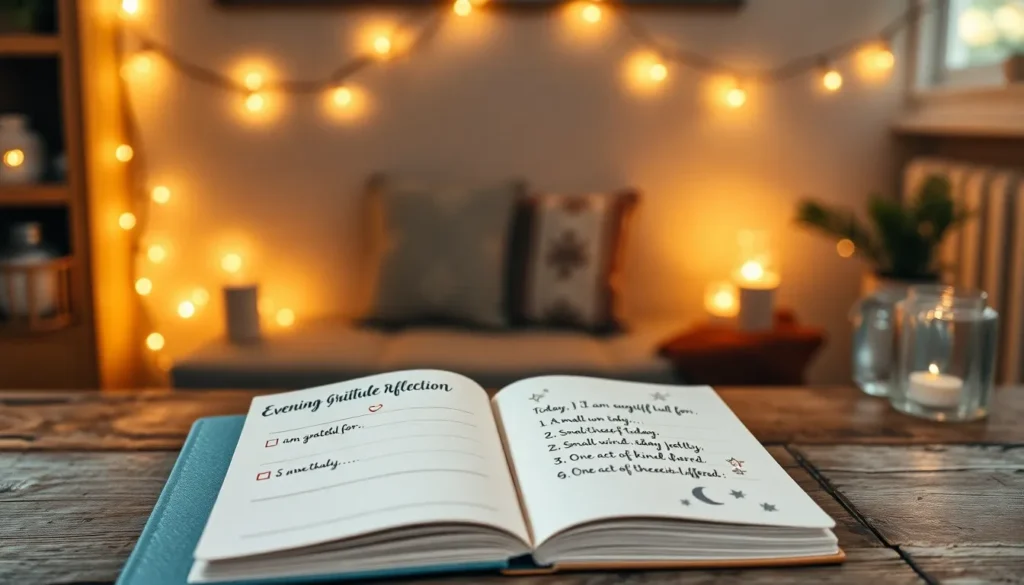 Evening Gratitude Rflection
am grateful for..
S awethaly.....
Today, I am augiff lall for.
1. A mall wn tady...
2. Snalthecs f today.
2. Small wind. eday pelly.
3. One act of kind. Rared.
6. One act of theecis l iffered.: